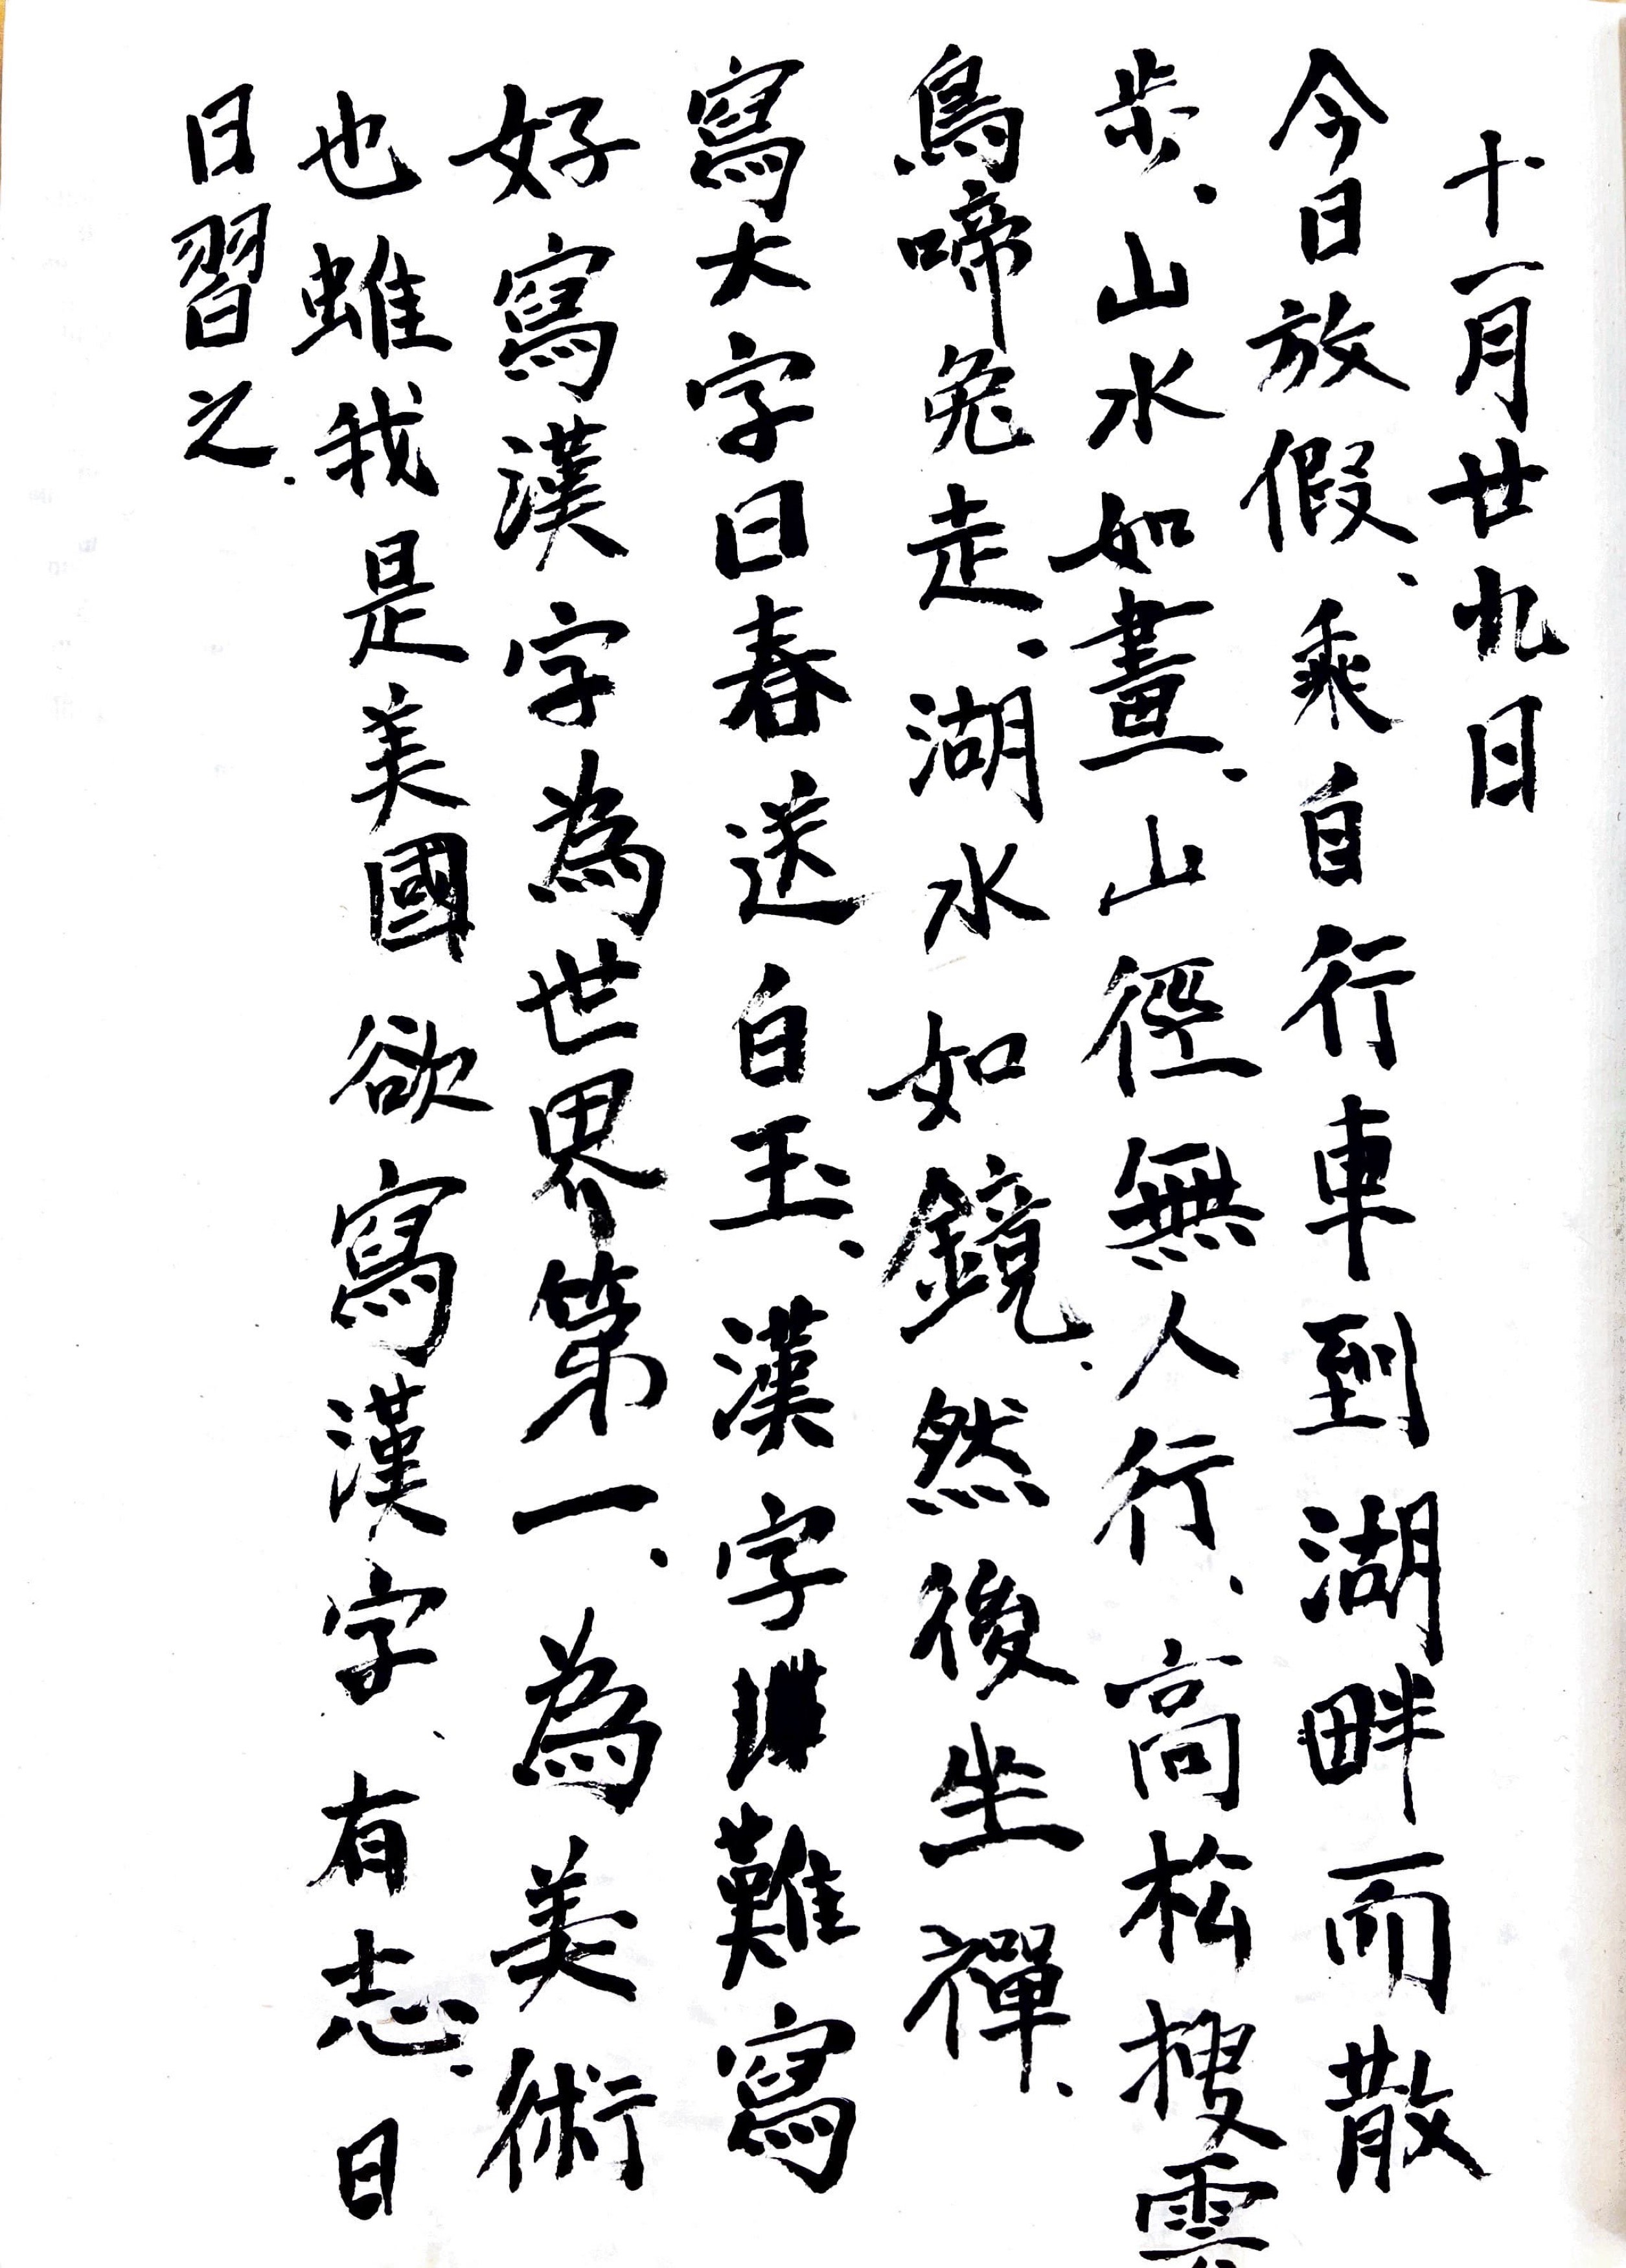 十一月廿九日
今日放假、乘自行車到湖畔而散
步、山水如畫、山徑無人行、高松搜雲
鳥啼兔走、湖水如鏡、然後坐禪、
寫大字曰春送白玉、漢字難寫
好寫漢字為世界第一、為美術
也雖我是美國欲寫漢字、有志、日
日習之、